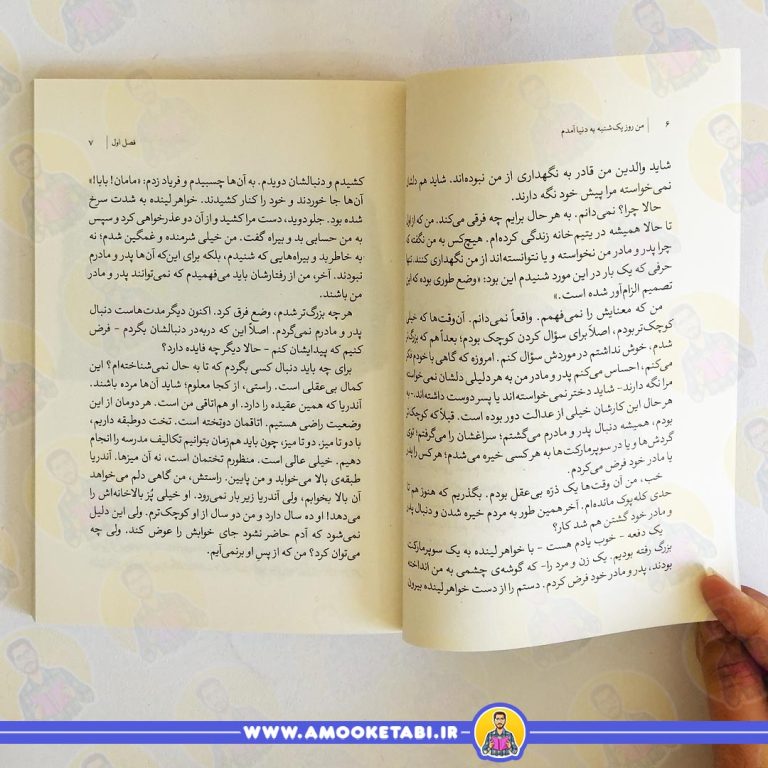 ۶ | من روز یک شنبه به دنیا آمدم
شاید والدین من قادر به نگهداری از من نبوده‌اند. شاید هم دلشان
نمی‌خواسته مرا پیش خود نگه دارند.
حالا چرا؟ نمی‌دانم. به هر حال برایم چه فرقی می‌کند. من که از اول
تا حالا همیشه در یتیم‌خانه زندگی کرده‌ام. هیچ‌کس به من نگفته که
چرا پدر و مادر من نخواسته و یا نتوانسته‌اند از من نگهداری کنند. تنها
حرفی که یک بار در این مورد شنیدم این بود: «وضع طوری بوده که این
تصمیم الزام‌آور شده است.»
من که معنایش را نمی‌فهمم. واقعاً نمی‌دانم. آن‌وقت‌ها که خیلی
کوچک‌تر بودم، اصلاً برای سؤال کردن کوچک بودم؛ بعداً هم که بزرگ‌تر
شدم، خوش نداشتم در موردش سؤال کنم. امروزه که گاهی با خودم فکر
می‌کنم، احساس می‌کنم پدر و مادر من به هر دلیلی دلشان نمی‌خواسته
مرا نگه دارند- شاید دختر نمی‌خواسته‌اند یا پسر دوست داشته‌اند- به
هر حال این کارشان خیلی از عدالت دور بوده است. قبلاً که کوچک‌تر
بودم، همیشه دنبال پدر و مادرم می‌گشتم؛ سراغشان را می‌گرفتم؛ توی
گردش‌ها و یا در سوپرمارکت‌ها به هر کسی خیره می‌شدم؛ هر کس را پدر
یا مادر خود فرض می‌کردم.
خب، من آن وقت‌ها یک ذرّه بی‌عقل بودم. بگذریم که هنوز هم تا
حدی کله‌پوک مانده‌ام. آخر همین طور به مردم خیره شدن و دنبال پدر
و مادر خود گشتن هم شد کار؟
یک دفعه - خوب یادم هست - با خواهر لینده به یک سوپرمارکت
بزرگ رفته بودیم. یک زن و مرد را- که گوشه‌ی چشمی به من انداخته
بودند، پدر و مادر خود فرض کردم. دستم را از دست خواهر لینده بیرون
فصل اول | ۷
کشیدم و دنبالشان دویدم. به آن‌ها چسبیدم و فریاد زدم: «مامان! بابا!»
آن‌ها جا خوردند و خود را کنار کشیدند. خواهر لینده به شدت سرخ
شده بود. جلو دوید، دست مرا کشید و از آن دو عذرخواهی کرد و سپس
به من حسابی بد و بیراه گفت. من خیلی شرمنده و غمگین شدم؛ نه
به خاطر بد و بیراه‌هایی که شنیدم، بلکه برای این‌که آن‌ها پدر و مادرم
نبودند. آخر، من از رفتارشان باید می‌فهمیدم که نمی‌توانند پدر و مادر
من باشند.
هر چه بزرگ‌تر شدم، وضع فرق کرد. اکنون دیگر مدت‌هاست دنبال
پدر و مادرم نمی‌گردم. اصلاً این که دربه‌در دنبالشان بگردم - فرض
کنیم که پیدایشان کنم - حالا دیگر چه فایده دارد؟
برای چه باید دنبال کسی بگردم که تا به حال نمی‌شناخته‌ام؟ این
کمال بی‌عقلی است. راستی، از کجا معلوم؛ شاید آن‌ها مرده باشند.
آندریا که همین عقیده را دارد. او هم‌اتاقی من است. هر دومان از این
وضعیت راضی هستیم. اتاقمان دوتخته است. تخت دوطبقه داریم،
با دو تا میز، دو تا میز، چون باید هم‌زمان بتوانیم تکالیف مدرسه را انجام
دهیم. خیلی عالی است. منظورم تختمان است، نه آن میزها. آندریا
طبقه‌ی بالا می‌خوابد و من پایین. راستش، من گاهی دلم می‌خواهد
آن بالا بخوابم، ولی آندریا زیر بار نمی‌رود. او خیلی پُز بالاخانه‌اش را
می‌دهد! او ده سال دارد و من دو سال از او کوچک‌ترم. ولی این دلیل
نمی‌شود که آدم حاضر نشود جای خوابش را عوض کند. ولی چه
می‌توان کرد؟ من که از پسِ او برنمی‌آیم.
WWW.AMOOKETABI.IR